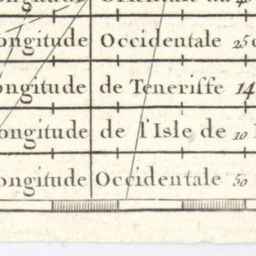 ongitude Occidentale 25
ongitude de Teneriffe 14
ongitude de l'Isle de 10
ongitude Occidentale 50